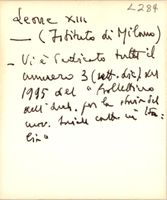 L284
Leone XIII
— (Istituto di Milano)
- Vi è dedicato tutto il
numero 3 (sett.-dic.) del
1995 del "Bollettino
dell'Arch. per la storia del
mov. sociale catt. in Ita
lia"